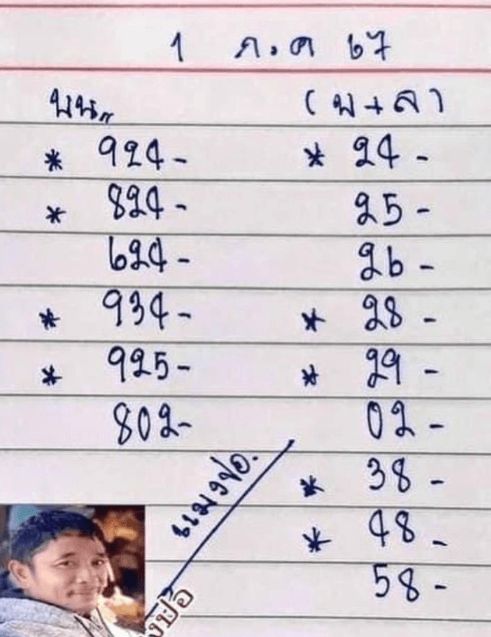 1 ก.ค 67
บน,, (บ+ล)
* 924- * 24-
* 824- 25-
624- 26-
* 934- * 28-
* 925- * 29-
802- 02-
* 38-
* 48-
58-